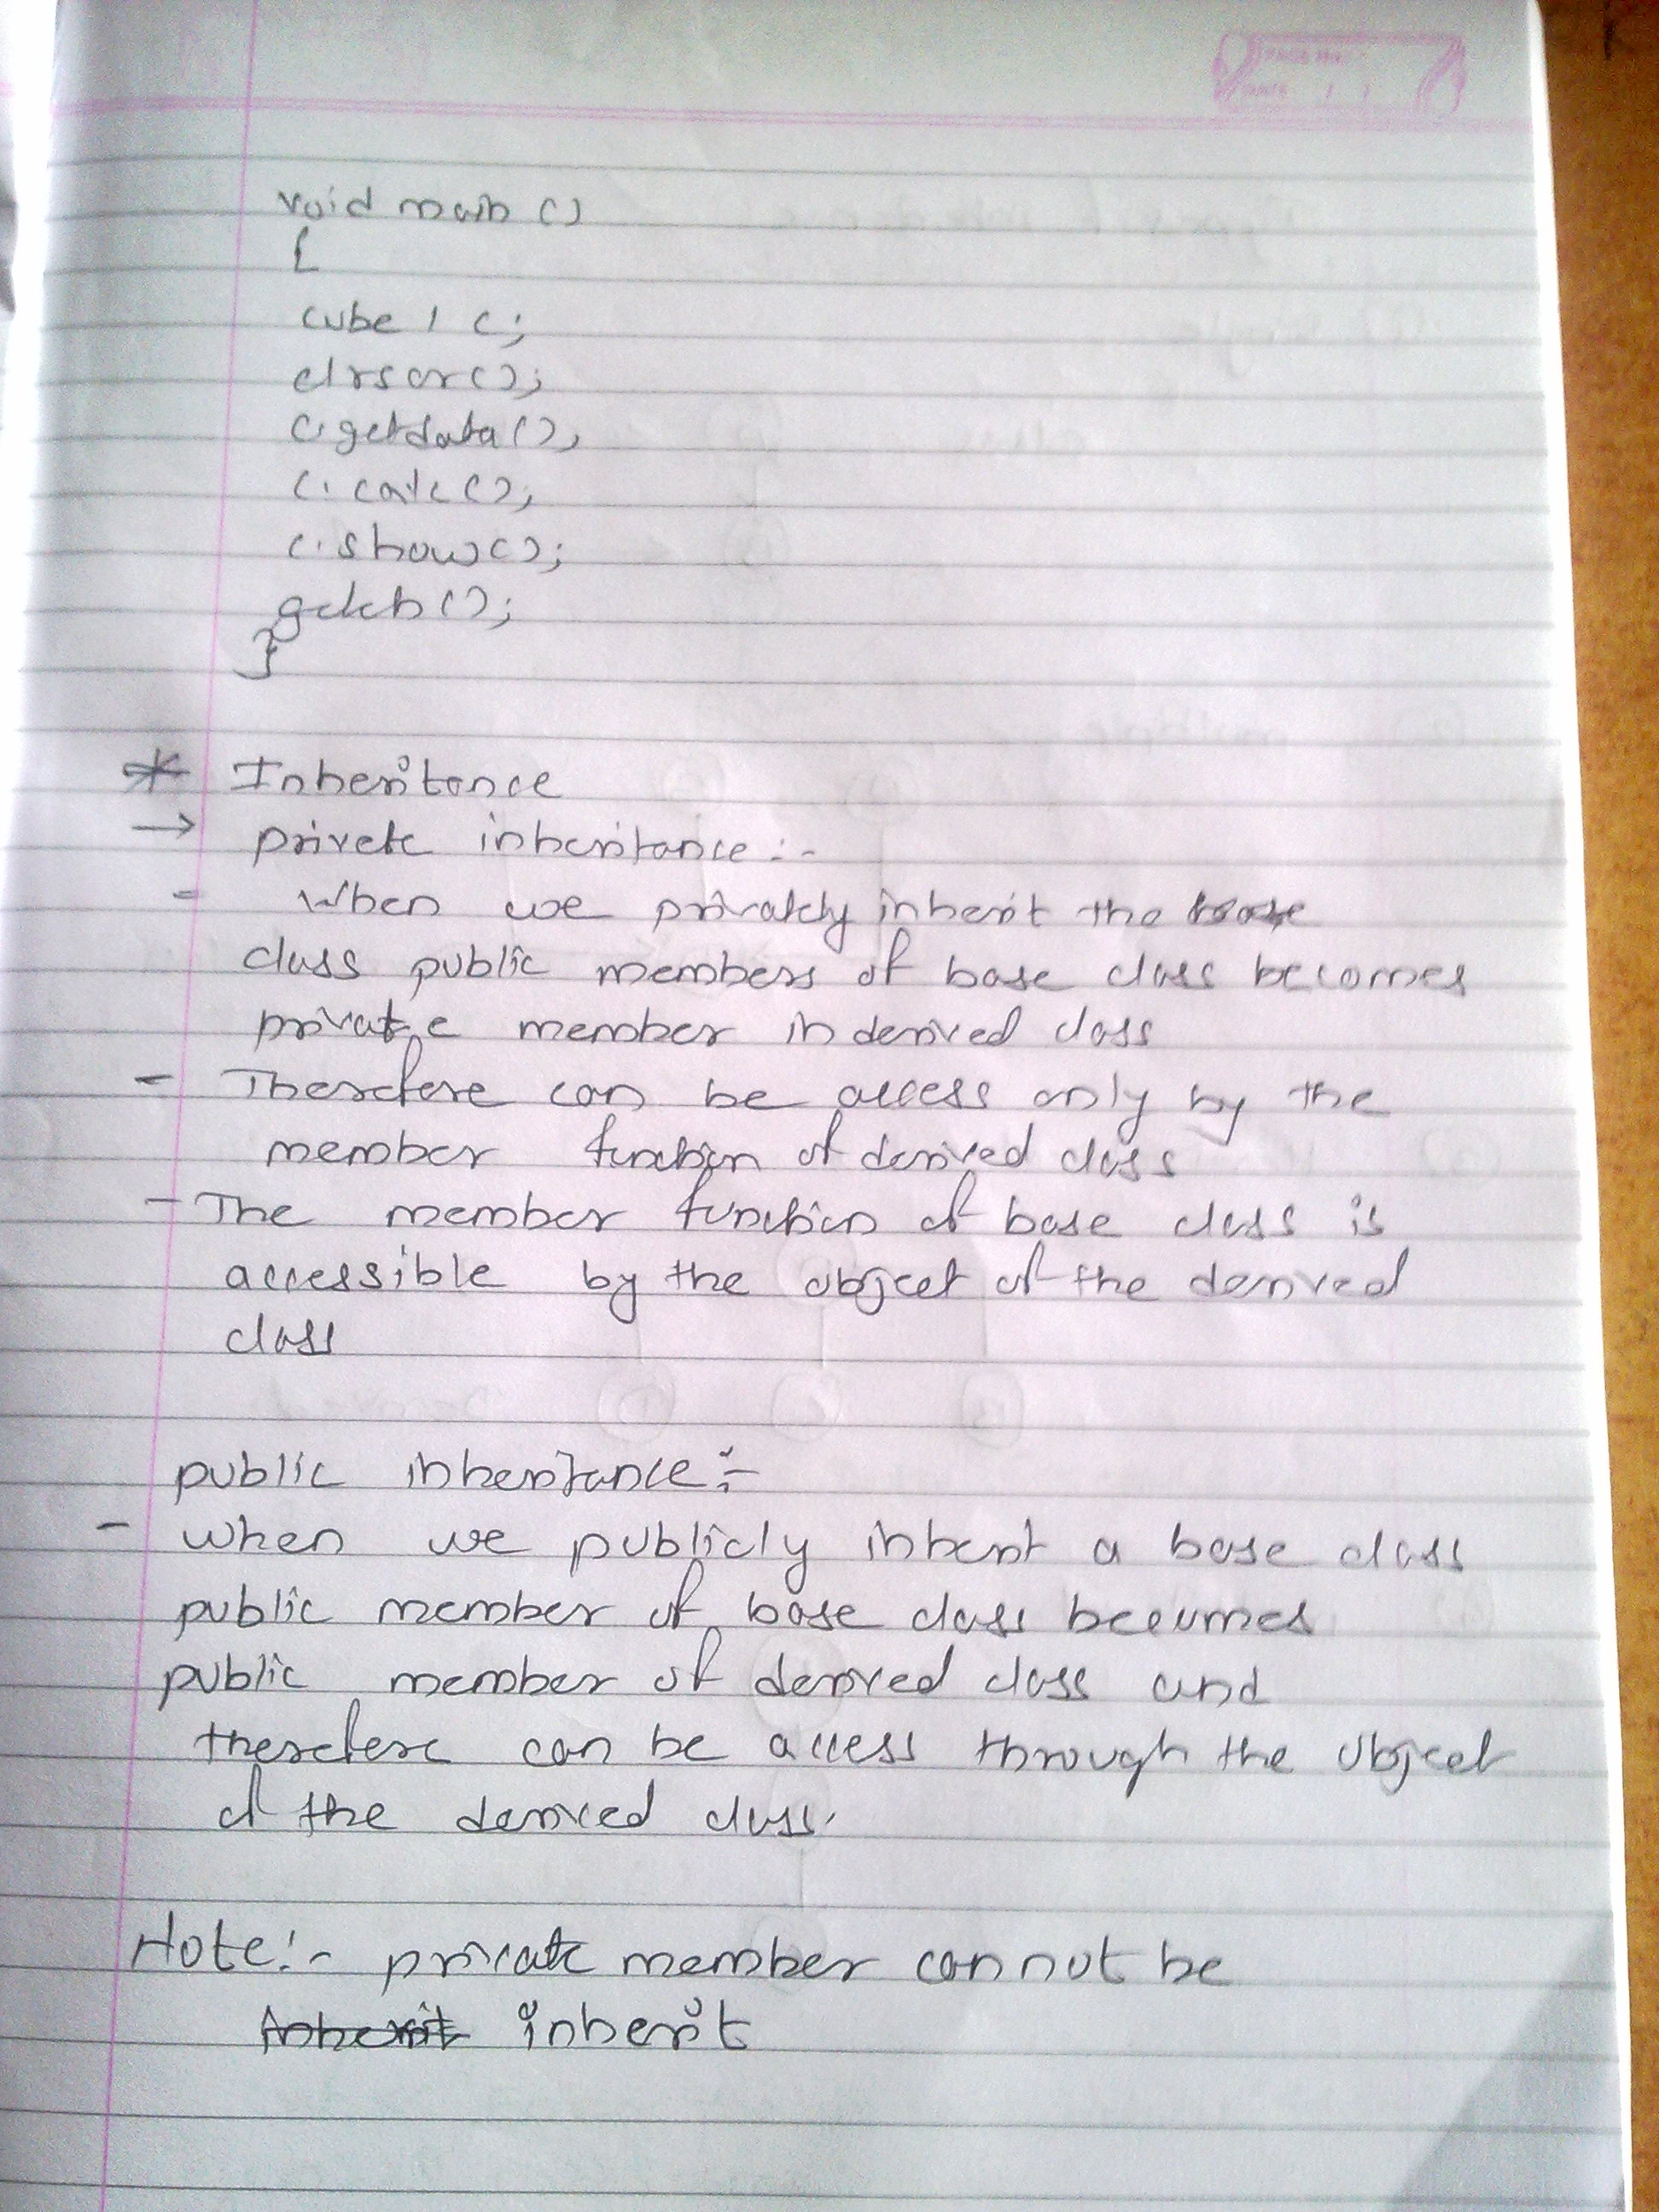 PAGE NO.:
DATE: / /
void main ()
{
cube 1 c;
clrscr();
c.getdata();
c. calc();
c.show();
getch();
}
* Inheritance
→ private inheritance :-
- When we privately inherit the base
class public members of base class becomes
private member in derived class
- Therefore can be access only by the
member function of derived class
- The member function of base class is
accessible by the object of the derived
class
public inheritance :-
- when we publicly inherit a base class
public member of base class becomes
public member of derived class and
therefore can be access through the object
of the derived class.
Note:- private member cannot be
inherit